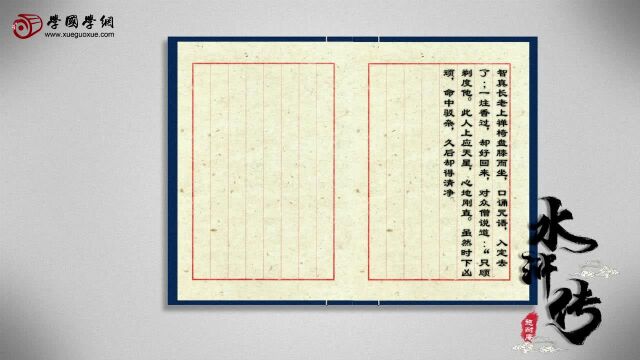 学国学网
www.xueguoxue.com
智真长老上禅椅盘膝而坐，口诵咒语，入定去
了；一炷香过，却好回来，对众僧说道：“只顾
剃度他。此人上应天星，心地刚直。虽然时下凶
顽，命中驳杂，久后却得清净
水浒传
施耐庵